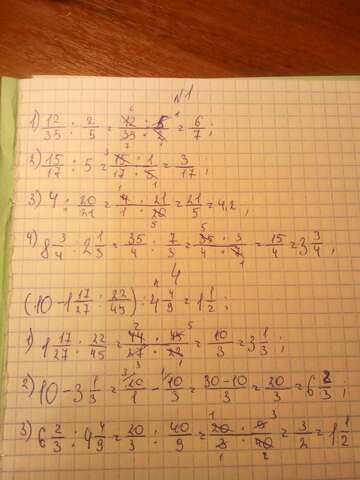 №1
1) 12/35 : 2/5 = 12/35 · 5/2 = 6/7;
2) 15/17 : 5 = 15/17 · 1/5 = 3/17;
3) 4 : 20/21 = 4/1 · 21/20 = 21/5 = 4,2,
4) 8 3/4 : 2 1/3 = 35/4 : 7/3 = 35/4 · 3/7 = 15/4 = 3 3/4,
4
(10 - 1 17/27 : 22/45) : 4 4/9 = 1 1/2;
1) 1 17/27 : 22/45 = 44/27 · 45/22 = 10/3 = 3 1/3;
2) 10 - 3 1/3 = 10/1 - 10/3 = 30-10/3 = 20/3 = 6 2/3;
3) 6 2/3 : 4 4/9 = 20/3 : 40/9 = 20/3 · 9/40 = 3/2 = 1 1/2